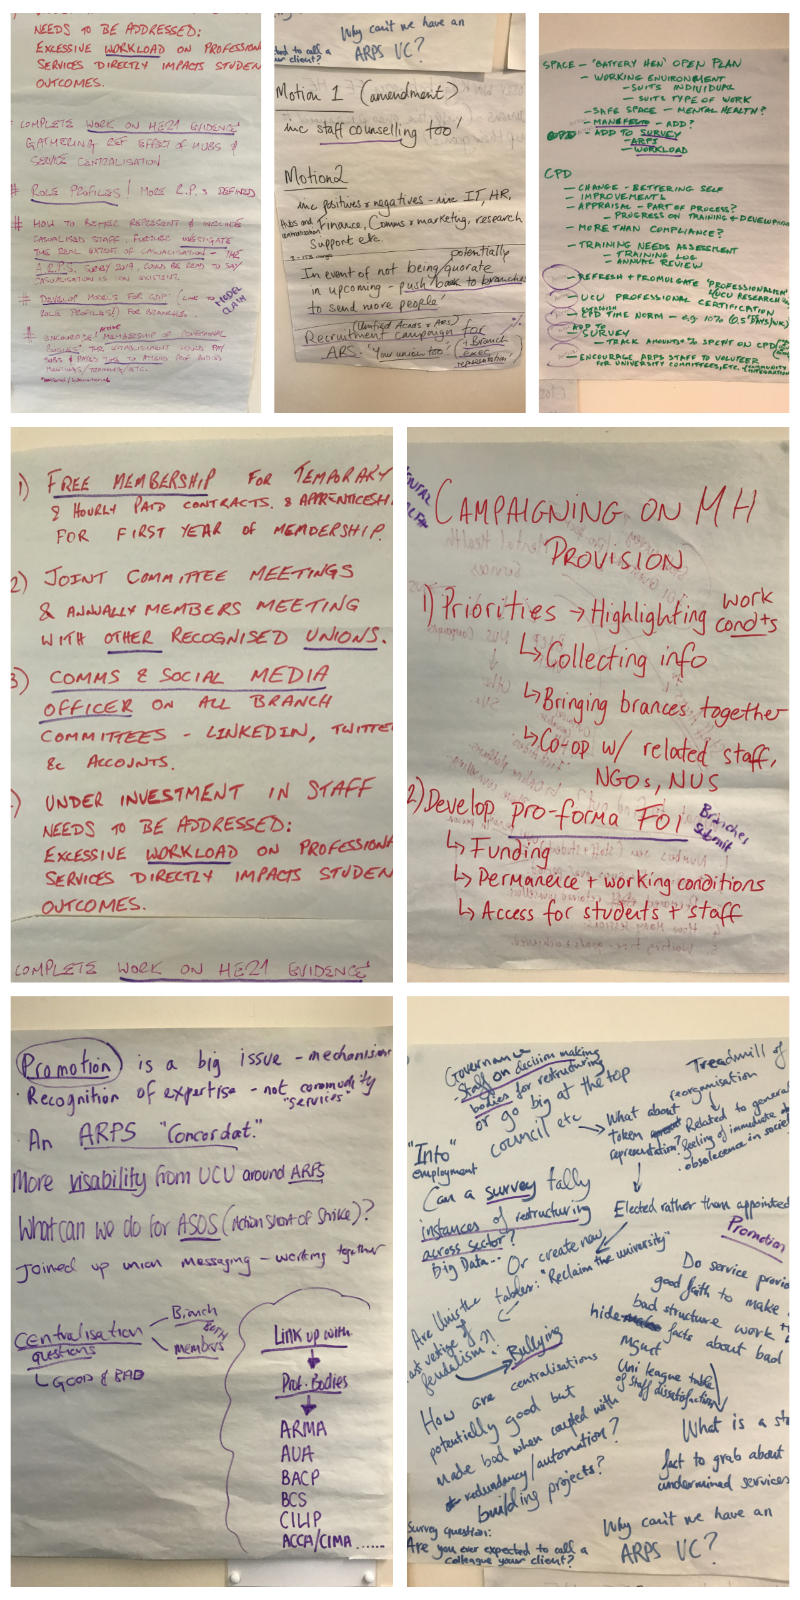 NEEDS TO BE ADDRESSED:
EXCESSIVE WORKLOAD ON PROFESSION
SERVICES DIRECTLY IMPACTS STUDEN
OUTCOMES.
COMPLETE WORK ON HE21 EVIDENCE
GATHERING REF EFFECT OF HUBS &
SERVICE CENTRALISATION
# ROLE PROFILES! MORE R.P.s DEFINED
# HOW TO BETTER REPRESENT & INCLUDE
CASUALISED STAFF, FURTHER
THE REAL EXTENT OF CASUALISATION - THE
A.R.P.S. SURVEY 2019, COULD BE READ TO SAY
CASUALISATION IS NON EXISTENT.
# DEVELOP MODELS FOR (LINK TO
ROLE PROFILES!) FOR BRANCHES.
MODEL CLAIM
# ENCOURAGE! ACTIVE MEMBERSHIP OF PROFESSIONAL
BODIES* THE ESTABLISHMENT COULD PAY
SUBS & PAYES TIME TO ATTEND PROF BODIES
MEETINGS/TRAINING/ETC.
Why can't we have an
ARPS VC?
ted to call a
ur client?
Motion 1 (amendment)
inc staff counselling too'
Motion 2
inc positives & negatives - inc IT, HR,
Hubs and centralisation
Finance, Comms & marketing, research
support etc.
In event of not being potentially quorate
in upcoming - push back to branches
to send more people'
(Unified Acads & ARS)
Recruitment campaign for
ARS. 'Your union too' (+ Branch
exec
representation)
SPACE - 'BATTERY HEN' OPEN PLAN
- WORKING ENVIRONMENT
- SUITS INDIVIDUAL
- SUITS TYPE OF WORK
- SAFE SPACE - MENTAL HEALTH?
- MANIFESTO - ADD?
CPD - ADD TO SURVEY
- ARPS
- WORKLOAD
CPD
- CHANGE - BETTERING SELF
- IMPROVEMENTS
- APPRAISAL - PART OF PROCESS?
- PROGRESS ON TRAINING & DEVELOPM
- MORE THAN COMPLIANCE?
- TRAINING NEEDS ASSESSMENT
- TRAINING LOG
- ANNUAL REVIEW
- REFRESH + PROMULGATE 'PROFESSIONALISM'
UCU RESEARCH
- UCU PROFESSIONAL CERTIFICATION
- ESTABLISH CPD TIME NORM - e.g 10% (0.5 DAYS/WK)
- ADD TO SURVEY
- TRACK AMOUNT & % SPENT ON CPD
- ENCOURAGE ARPS STAFF TO VOLUTEER
FOR UNIVERSITY COMMITTEES, ETC. COMMUNITY INTEGRATION
1) FREE MEMBERSHIP FOR TEMPORARY
& HOURLY PAID CONTRACTS. & APPRENTICESHI
FOR FIRST YEAR OF MEMBERSHIP.
2) JOINT COMMITTEE MEETINGS
& ANNUALLY MEMBERS MEETING
WITH OTHER RECOGNISED UNIONS.
3) COMMS & SOCIAL MEDIA
OFFICER ON ALL BRANCH
COMMITTEES - LINKEDIN, TWITTE
&c ACCOUNTS.
UNDER INVESTMENT IN STAFF
NEEDS TO BE ADDRESSED:
EXCESSIVE WORKLOAD ON PROFESSION
SERVICES DIRECTLY IMPACTS STUDEN
OUTCOMES.
COMPLETE WORK ON HE21 EVIDENCE
CAMPAIGNING ON MH
PROVISION
1) Priorities → Highlighting work
cond↑s
↳ Collecting info
↳ Bringing brances together
↳ Co-op w/ related staff,
NGOs, NUS
2) Develop pro-forma FOI
Branches
submit
↳ Funding
↳ Permanence + working conditions
↳ Access for students + staff
Promotion is a big issue - mechanisms
· Recognition of expertise - not commodity
"services"
· An ARPS "Concordat."
More visability from UCU around ARPS
What can we do for ASOS (Action Short of Strike)?
Joined up union messaging - working together
Centralisation
questions
Branch
BOTH
members
↳ GOOD & BAD
Link up with
Prof. Bodies
ARMA
AUA
BACP
BCS
CILIP
ACCA/CIMA ......
Governance
- Staff on decision making
bodies for restructuring
or go big at the top
council etc
Treadmill of
reorganisation
What about
token
representation?
Related to general
feeling of immediate
obsolecence in societ
"Into"
employment
Can a survey tally
instances of restructuring
across sector?
big Data...
Elected rather than appointed
Promotion
Or create new
tables: "Reclaim the university"
Are Unis the
last vestige of
feudalism?!
Bullying
Do service provi
good faith to make
bad structure work +
hide facts about bad
mgmt
Uni league table
of staff dissatisfaction
How are centralisations
potentially good but
made bad when coupled with
redundancy/automation?
building projects?
What is a sto
fact to grab about
undermined services
Survey question:
Are you ever expected to call a
colleague your client?
Why can't we have an
ARPS VC?